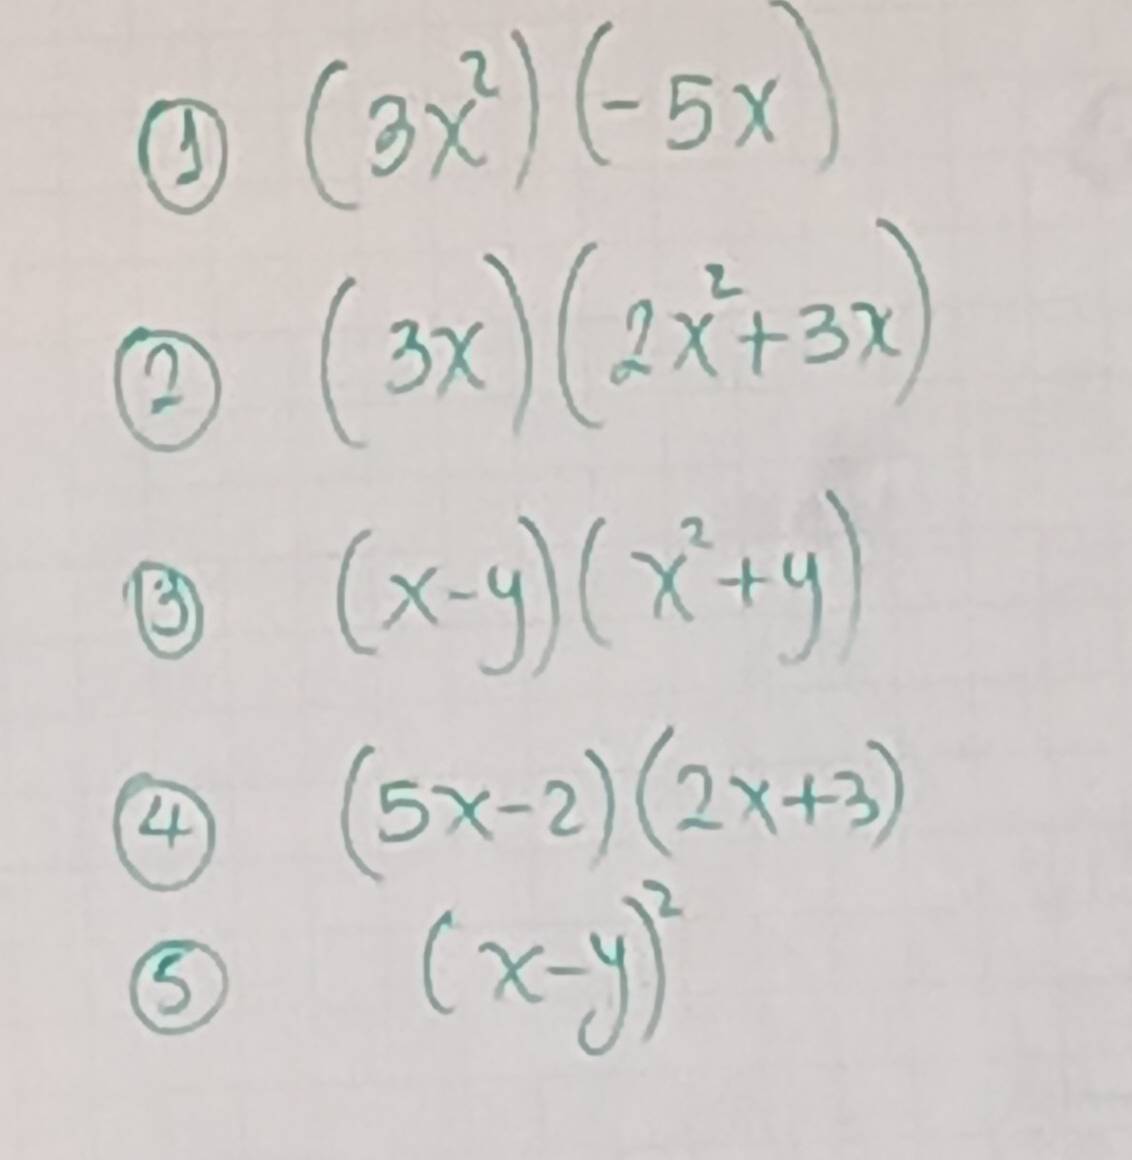 ① (3x²)(-5x)
② (3x)(2x²+3x)
③ (x-y)(x²+y)
④ (5x-2)(2x+3)
⑤ (x-y)²